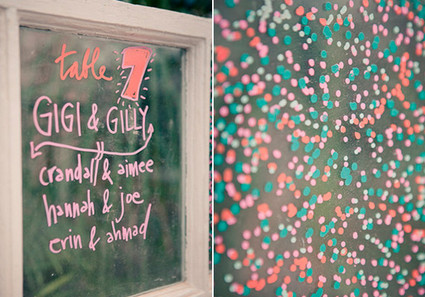 table 7
GIGI & GILLY
crandall & aimee
hannah & joe
erin & ahmad